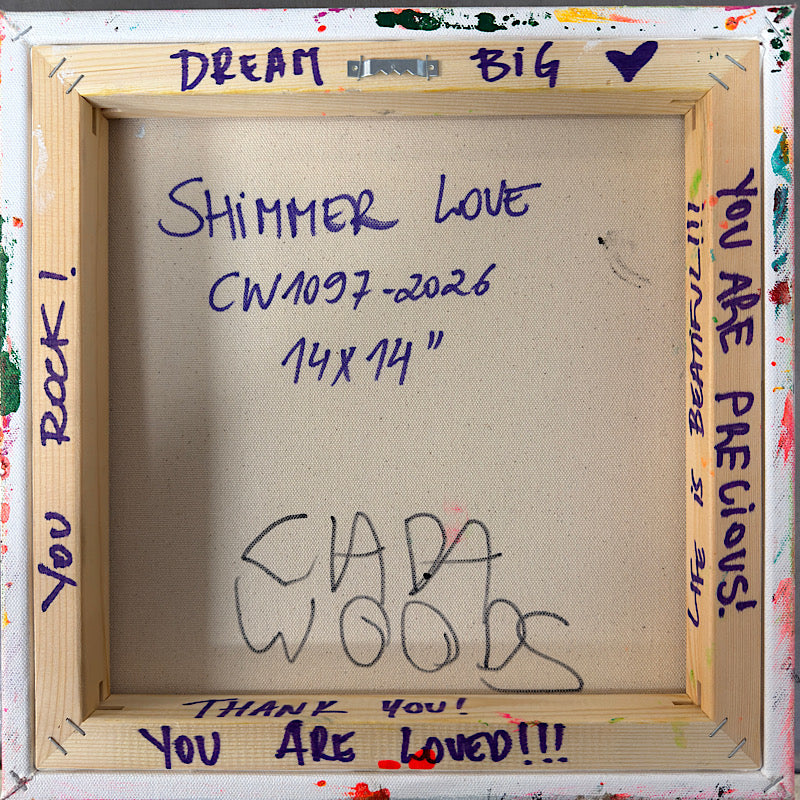 DREAM BiG ♥
SHiMMER LOVE
CW1097-2026
14x14"
CIARA
WOODS
THANK YOU!
YOU ARE LOVED!!!
YOU ROCK!
LIFE iS BEATIFUL!!!
YOU ARE PRECiOUS!